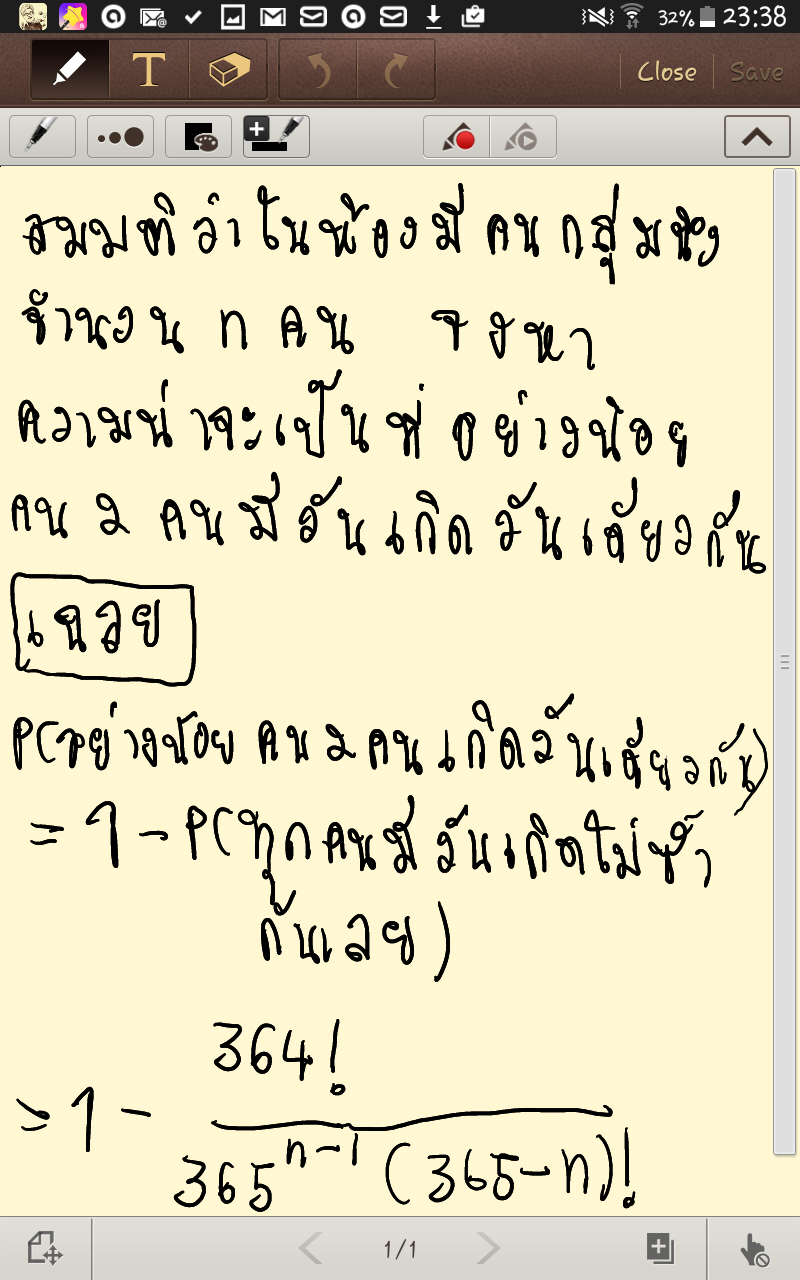 32% 23:38
T Close Save
สมมติว่าในห้องมีคนกลุ่มหนึ่ง
จำนวน n คน จงหา
ความน่าจะเป็นที่อย่างน้อย
คน 2 คนมีวันเกิดวันเดียวกัน
เฉลย
P(อย่างน้อยคน 2 คนเกิดวันเดียวกัน)
= 1 - P(ทุกคนมีวันเกิดไม่ซ้ำ
กันเลย)
364!
= 1 -
365^{n-1} (365-n)!
1/1